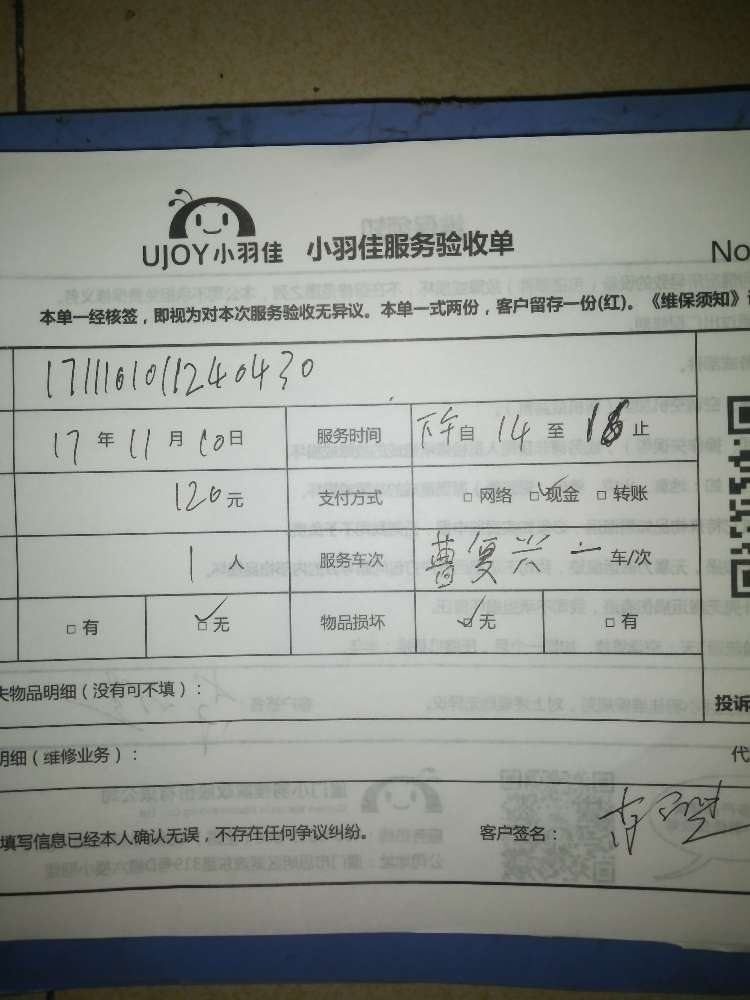 UJOY小羽佳 小羽佳服务验收单
No
本单一经核签，即视为对本次服务验收无异议。本单一式两份，客户留存一份(红)。《维保须知》
171110101124043​0
17年11月10日 服务时间 下午自14至 止
120元 支付方式 □网络 ☑现金 □转账
1人 服务车次 曹复兴 一 车/次
□有 ☑无 物品损坏 ☑无 □有
失物品明细（没有可不填）：
投诉
明细（维修业务）：
代
填写信息已经本人确认无误，不存在任何争议纠纷。 客户签名：